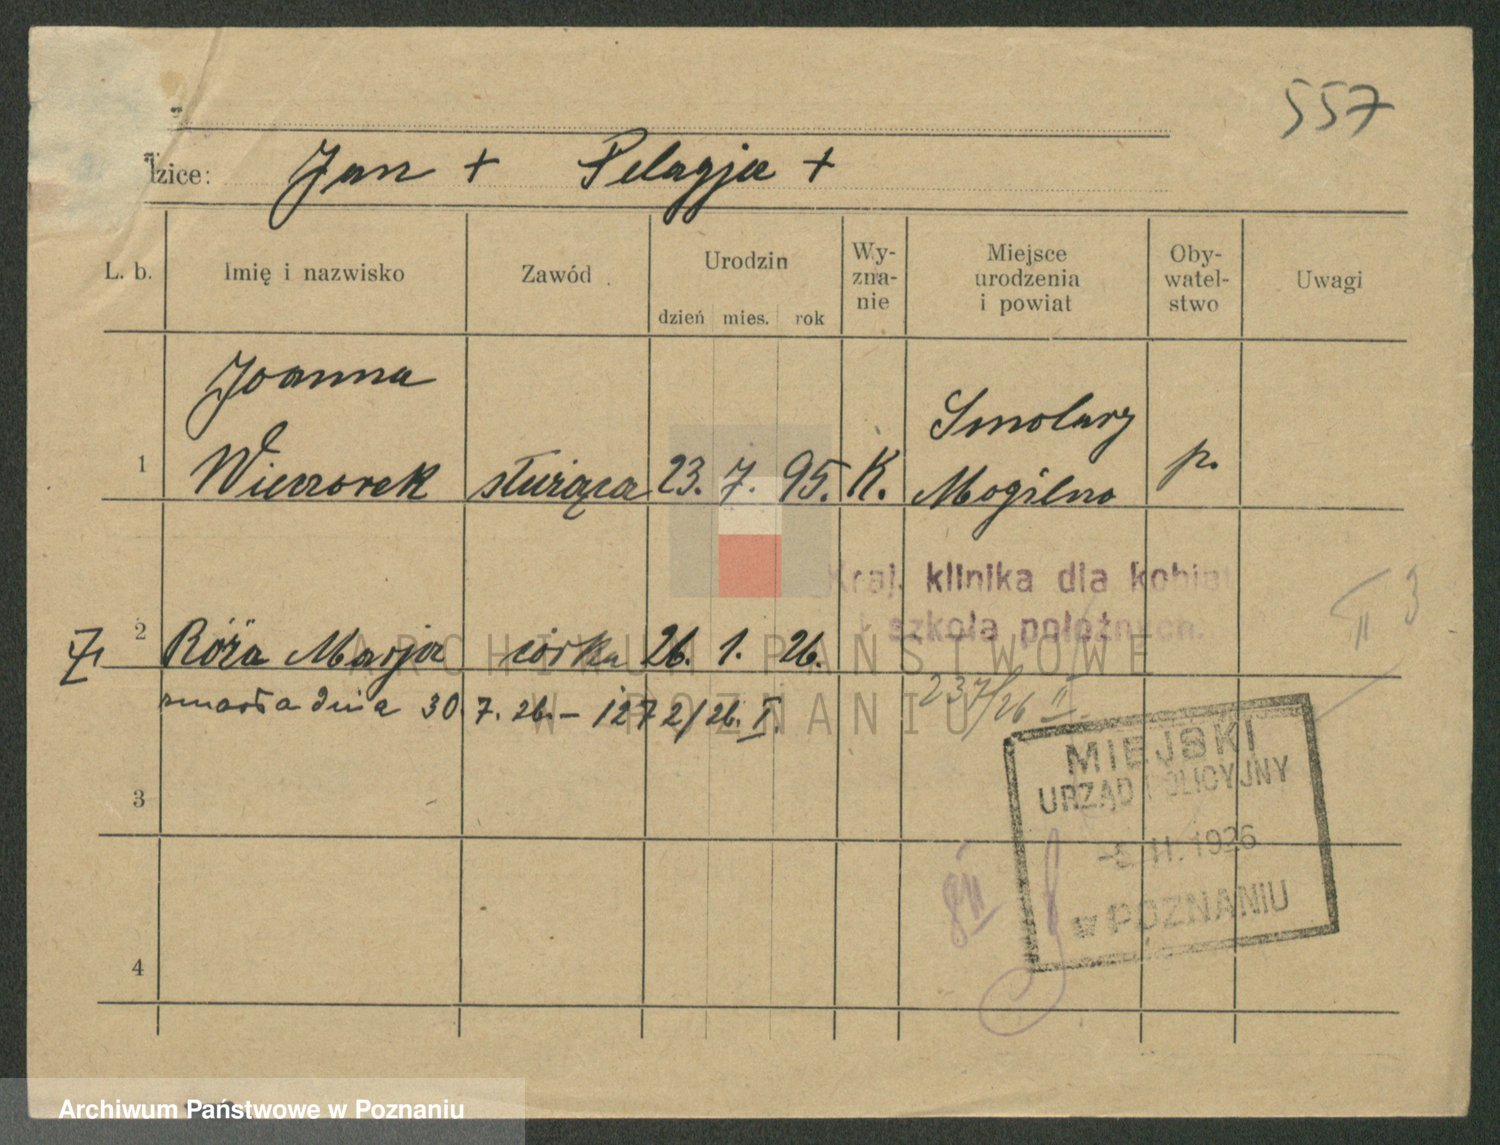 557
dzice: Jan + Pelagja +
L. b. Imię i nazwisko Zawód Urodzin dzień mies. rok Wy-zna-nie Miejsce urodzenia i powiat Oby-watel-stwo Uwagi
Joanna Smolary
1 Wieczorek służąca 23. 7. 95. K. Mogilno p.
Kraj. klinika dla kobiet
i szkoła położnych.
2 Róża Marja córka 26. 1. 26.
ARCHIWUM PAŃSTWOWE
W POZNANIU
237/26 II.
zmarła dnia 30. 7. 26. – 1272/26. I.
MIEJSKI
URZĄD POLICYJNY
II. 1926
w POZNANIU
3
8 II
4
Archiwum Państwowe w Poznaniu